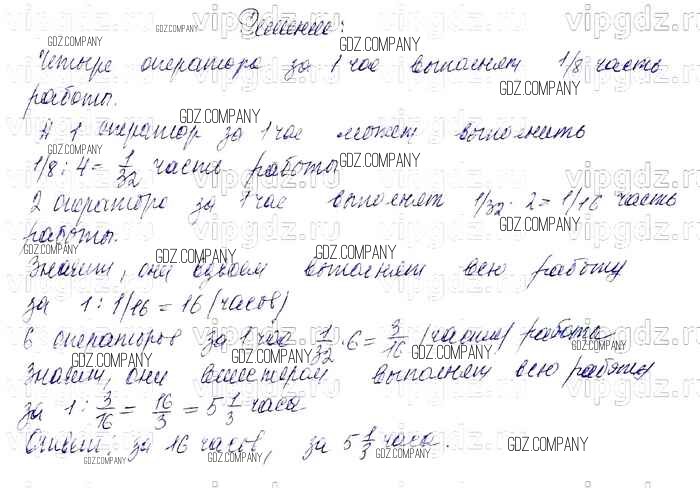 Решение:
Четыре оператора за 1 час выполняют 1/8 часть
работы.
А 1 оператор за 1 час может выполнить
1/8 : 4 = 1/32 часть работы
2 оператора за 1 час выполнят 1/32 · 2 = 1/16 часть
работы.
Значит, они вдвоем выполнят всю работу
за 1 : 1/16 = 16 (часов)
6 операторов за 1 час 1/32 · 6 = 3/16 (части) работы
Значит, они вшестером выполнят всю работу
за 1 : 3/16 = 16/3 = 5 1/3 часа
Ответ: за 16 часов, за 5 1/3 часа.